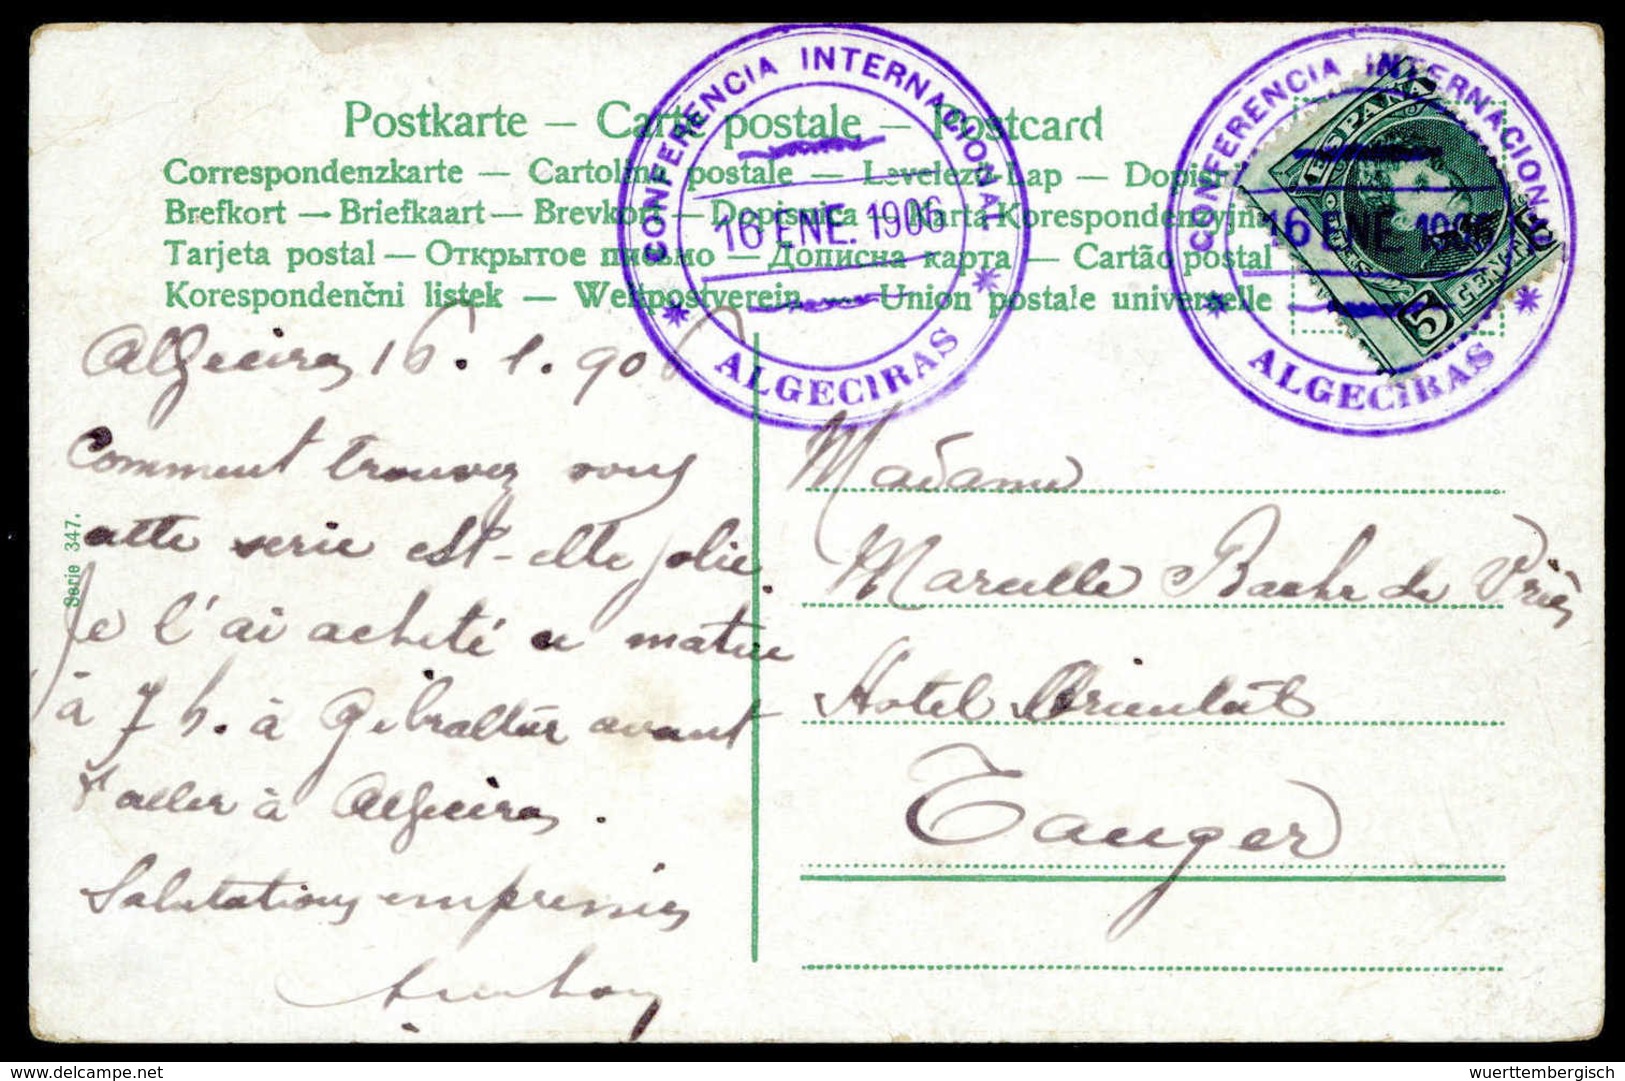 Postkarte – Carte postale – Postcard
Correspondenzkarte – Cartolina postale – Levelező-Lap –
Brefkort – Briefkaart – Brevkort – Dopisnica – Karta Korespondenzyjna
Tarjeta postal – Открытое письмо – Дописна карта – Cartão postal
Korespondenční listek – Weltpostverein – Union postale universelle
CONFERENCIA INTERNACIONAL
16 ENE. 1906
* ALGECIRAS *
CONFERENCIA INTERNACIONAL
16 ENE. 1906
* ALGECIRAS *
ESPAÑA
5
Serie 347.
Algeciras 16. 1. 906
Comment trouvez vous
cette serie est-elle jolie.
Je l'ai acheté ce matin
à 7 h. à Gibraltar avant
d'aller à Algeciras.
Salutations empressées
Madame
Marcelle de Vriès
Hotel Oriental
Tanger
wuerttembergisch